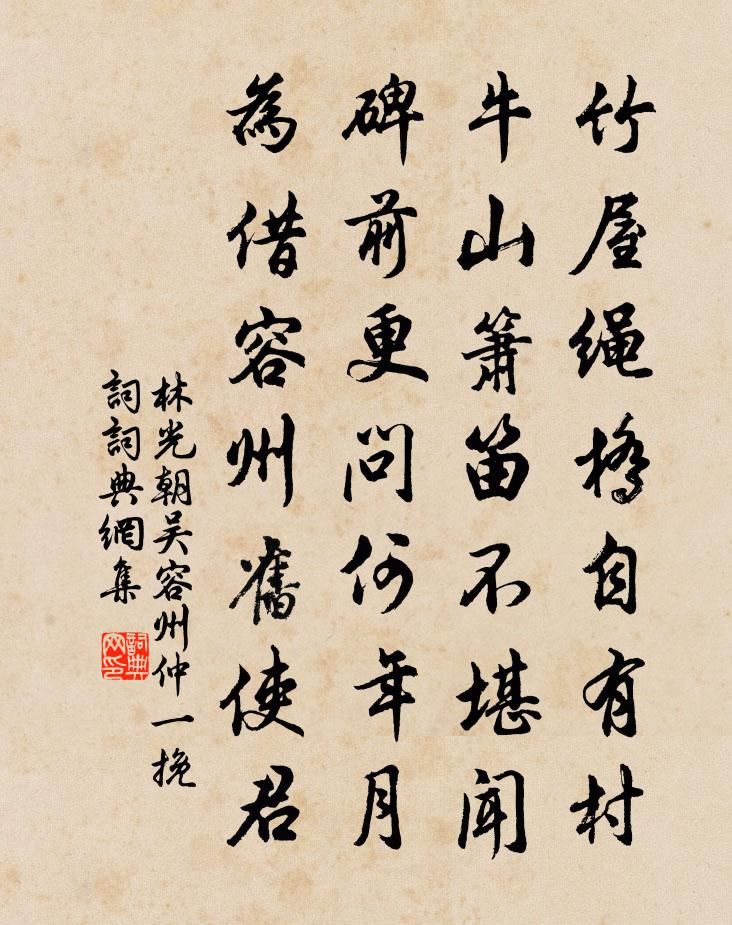 竹屋绳桥自有村
牛山箫笛不堪闻
碑前更问何年月
為借容州舊使君
林光朝吴容州仲一挽
詞詞典網集
詞典網印